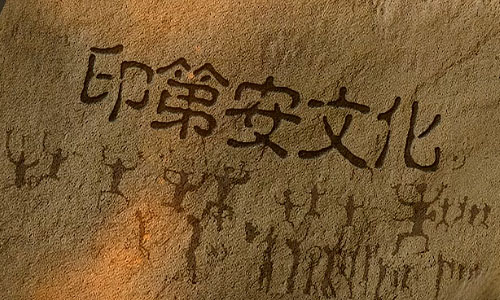 印第安文化